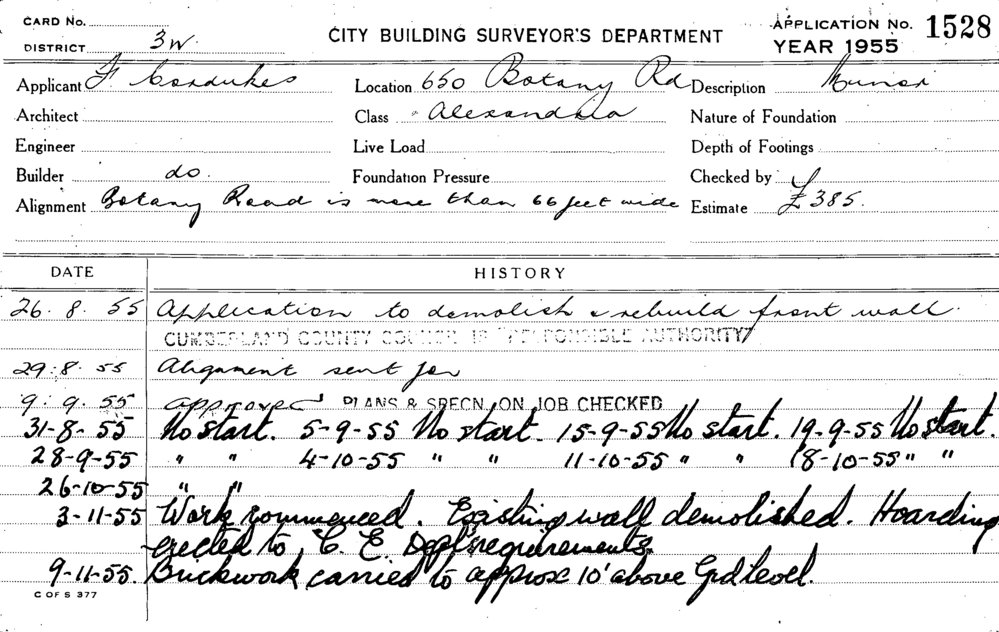 CARD No.
DISTRICT 3W
CITY BUILDING SURVEYOR'S DEPARTMENT
APPLICATION No. 1528
YEAR 1955
Applicant F. Cardukes Location 650 Botany Rd Description Minor
Architect Class Alexandria Nature of Foundation
Engineer Live Load Depth of Footings
Builder do. Foundation Pressure Checked by
Alignment Botany Road is more than 66 feet wide Estimate £385.
DATE HISTORY
26.8.55 Application to demolish & rebuild front wall.
CUMBERLAND COUNTY COUNCIL IS "RESPONSIBLE AUTHORITY"
29.8.55 Alignment sent for
9.9.55 approved PLANS & SPECN. ON JOB CHECKED
31-8-55 No start. 5-9-55 No start. 15-9-55 No start. 19-9-55 No start.
28-9-55 " " 4-10-55 " " 11-10-55 " " 18-10-55 " "
26-10-55 " "
3-11-55 Work commenced. Existing wall demolished. Hoarding
erected to C. E. Dept's requirements.
9-11-55. Brickwork carried to approx 10' above Grd level.
C OF S 377